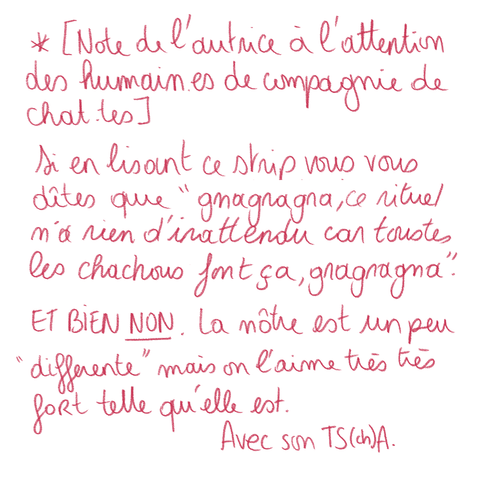 * [Note de l'autrice à l'attention
des humain.es de compagnie de
chat.tes]
Si en lisant ce strip vous vous
dîtes que "gnagnagna, ce rituel
n'a rien d'inattendu car toustes
les chachous font ça, gnagnagna".
ET BIEN NON. La nôtre est un peu
"différente" mais on l'aime très très
fort telle qu'elle est.
Avec son TS(ch)A.